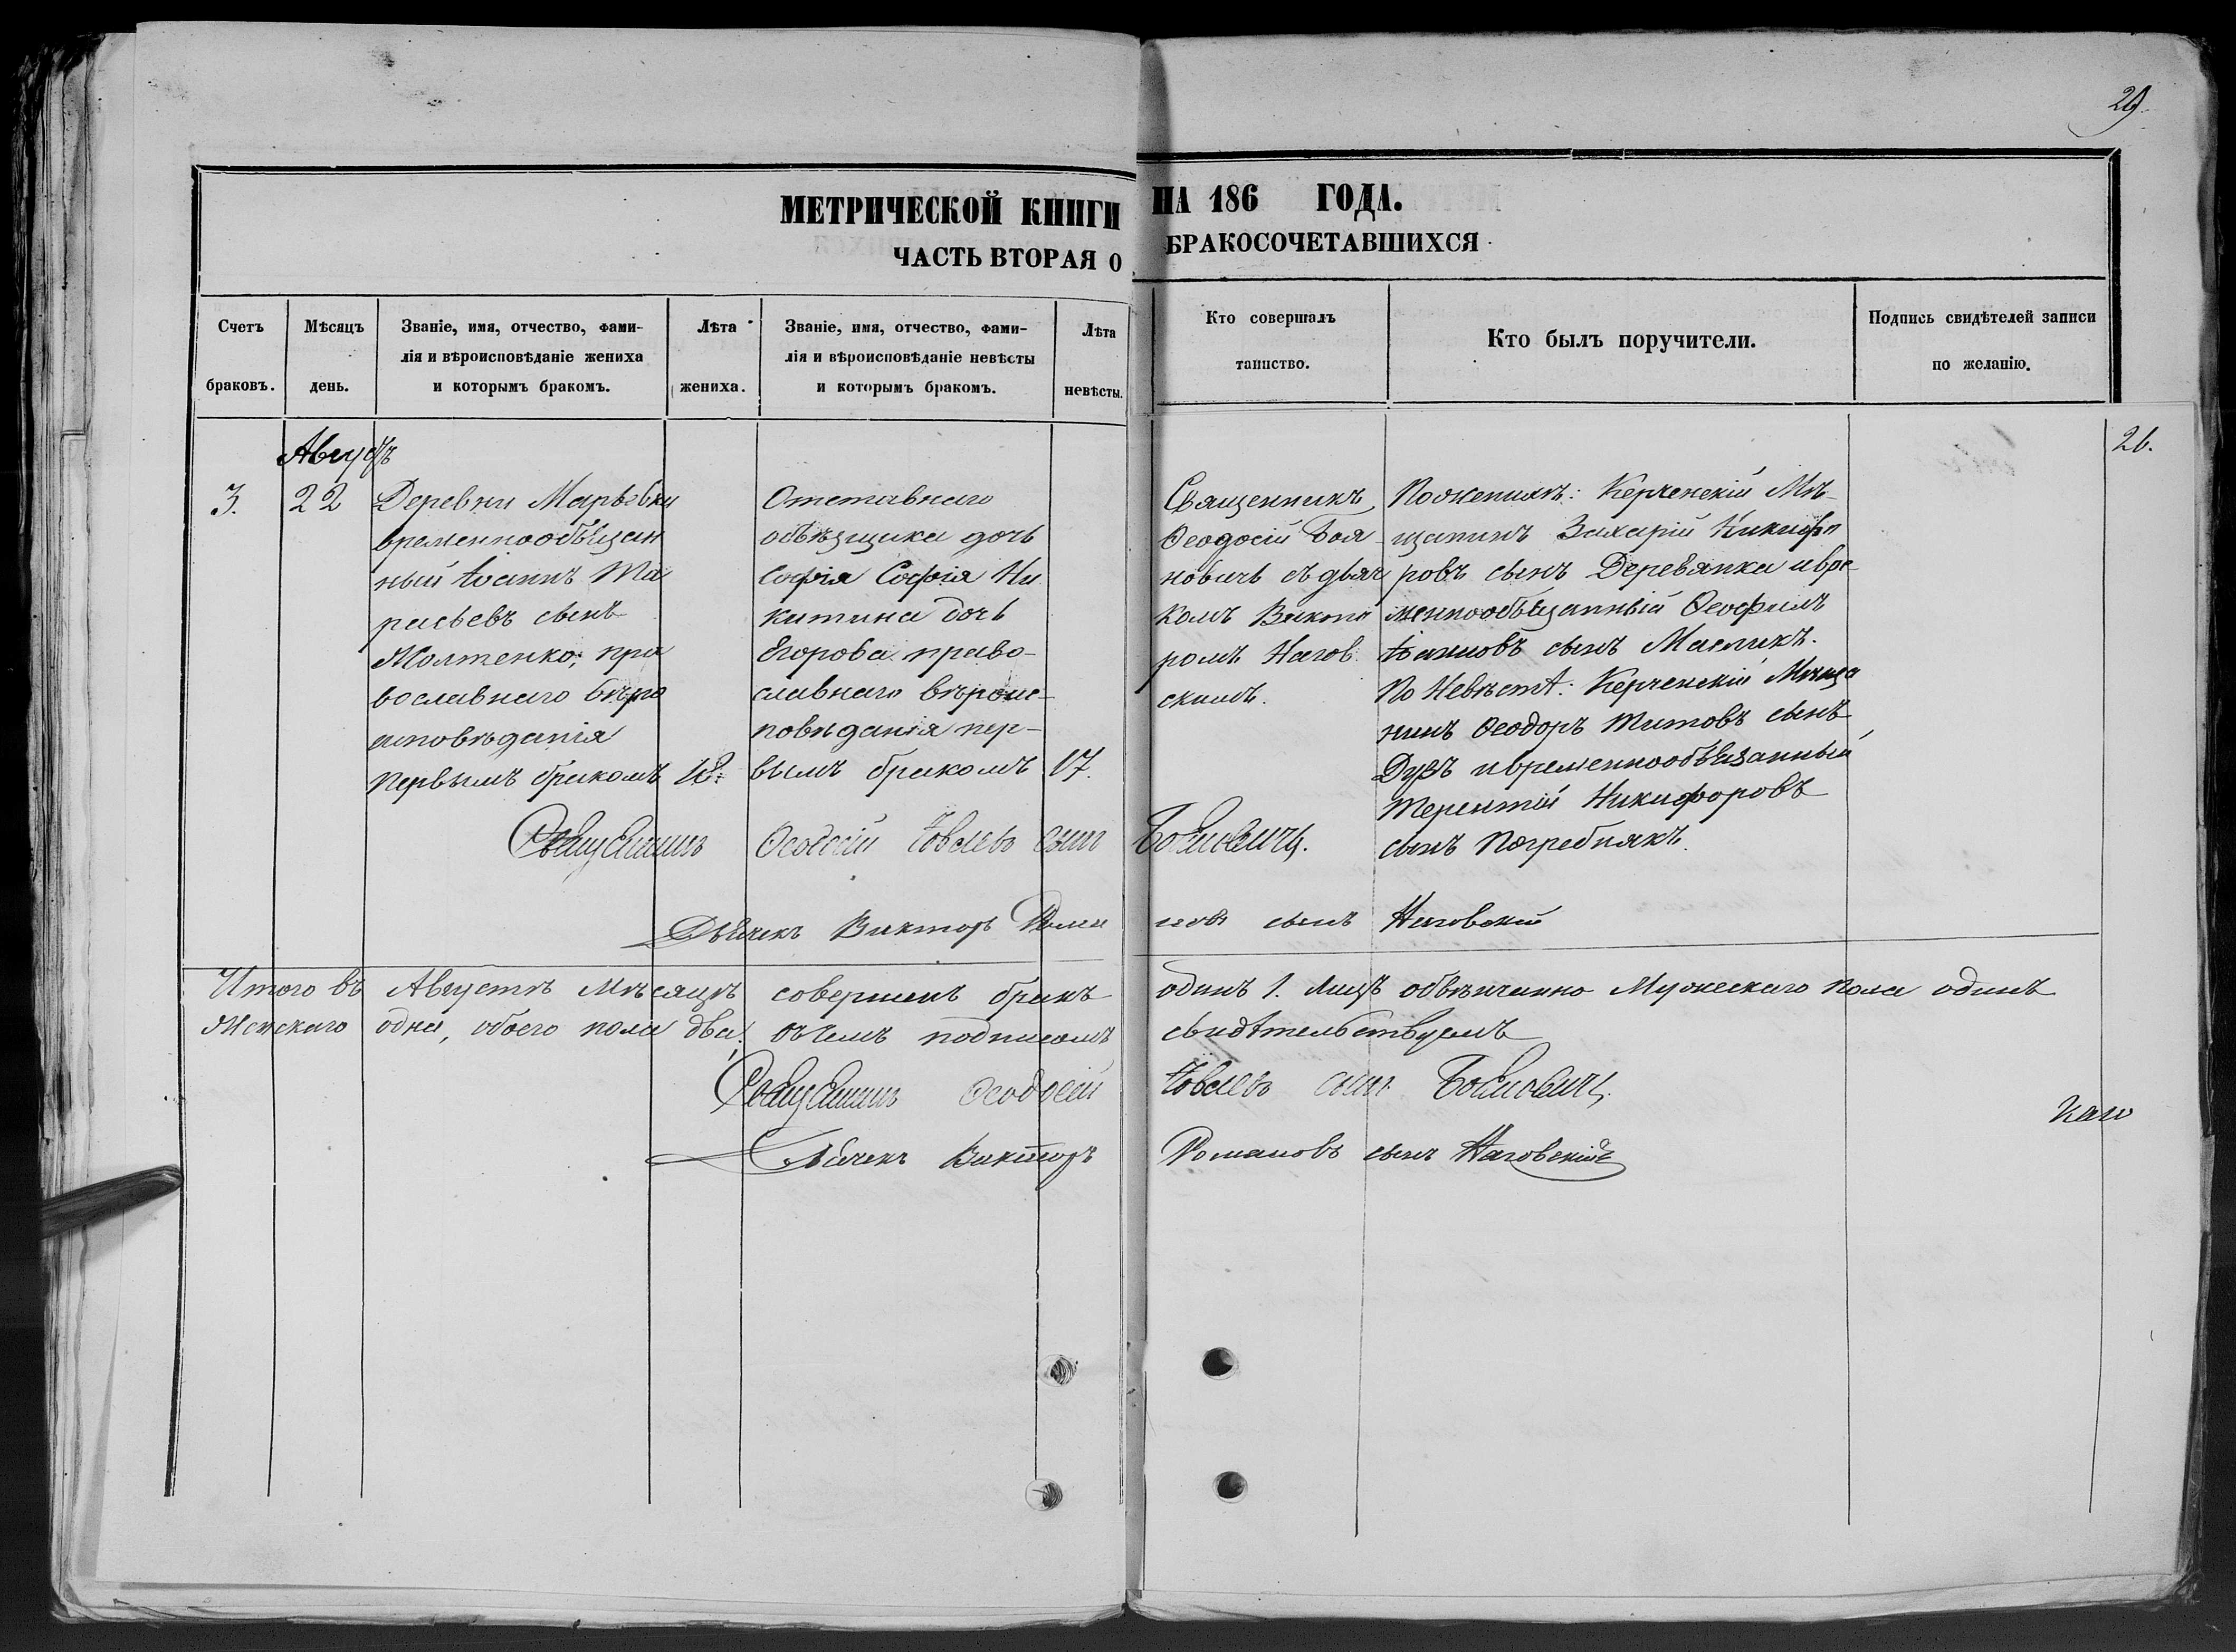 29
МЕТРИЧЕСКОЙ КНИГИ НА 186 ГОДА.
ЧАСТЬ ВТОРАЯ О БРАКОСОЧЕТАВШИХСЯ
Счетъ браковъ.
Мѣсяцъ день.
Званіе, имя, отчество, фами-
лія и вѣроисповѣданіе жениха
и которымъ бракомъ.
Лѣта жениха.
Званіе, имя, отчество, фами-
лія и вѣроисповѣданіе невѣсты
и которымъ бракомъ.
Лѣта невѣсты.
Кто совершалъ
таинство.
Кто былъ поручители.
Подпись свидѣтелей записи
по желанію.
26.
Августъ
3.
22
Деревни Марьевки
временнообѣщан
ный Іоаннъ Та
расьевъ сынъ
Молтенко, пра
вославнаго вѣро
исповѣданія
первымъ бракомъ
18.
Отставнаго
объѣщика дочь
Софія Софія Ни
китина дочь
Егорова право-
славнаго вѣроис-
повѣданія пер-
вымъ бракомъ
17.
Священникъ
Ѳеодосій Боя
новичъ съ дьяч
комъ Викто
ромъ Нагов
скимъ.
По женихѣ: Керченскій Мѣ-
щанинъ Захарій Никифо
ровъ сынъ Деревянка и вре
меннообѣщанный Ѳеофилъ
Іоанновъ сынъ Масликъ.
По Невѣстѣ: Керченскій Мѣща
нинъ Ѳеодоръ Титовъ сынъ
Дузъ и временнообѣязанный
Терентій Никифоровъ
сынъ Погребнякъ.
Священникъ Ѳеодосій Іовлевъ сынъ Бояновичъ.
Дьячекъ Викторъ Романовъ сынъ Наговскій
Итого въ Августѣ Мѣсяцѣ совершенъ бракъ одинъ 1. Лицъ обвѣнчанно Мужескаго пола одинъ
Женскаго одна, обоего пола два. Въ чемъ подписомъ свидѣтельствуемъ
Священникъ Ѳеодосій Іовлевъ сынъ Бояновичъ.
Дьячекъ Викторъ Романовъ сынъ Наговскій